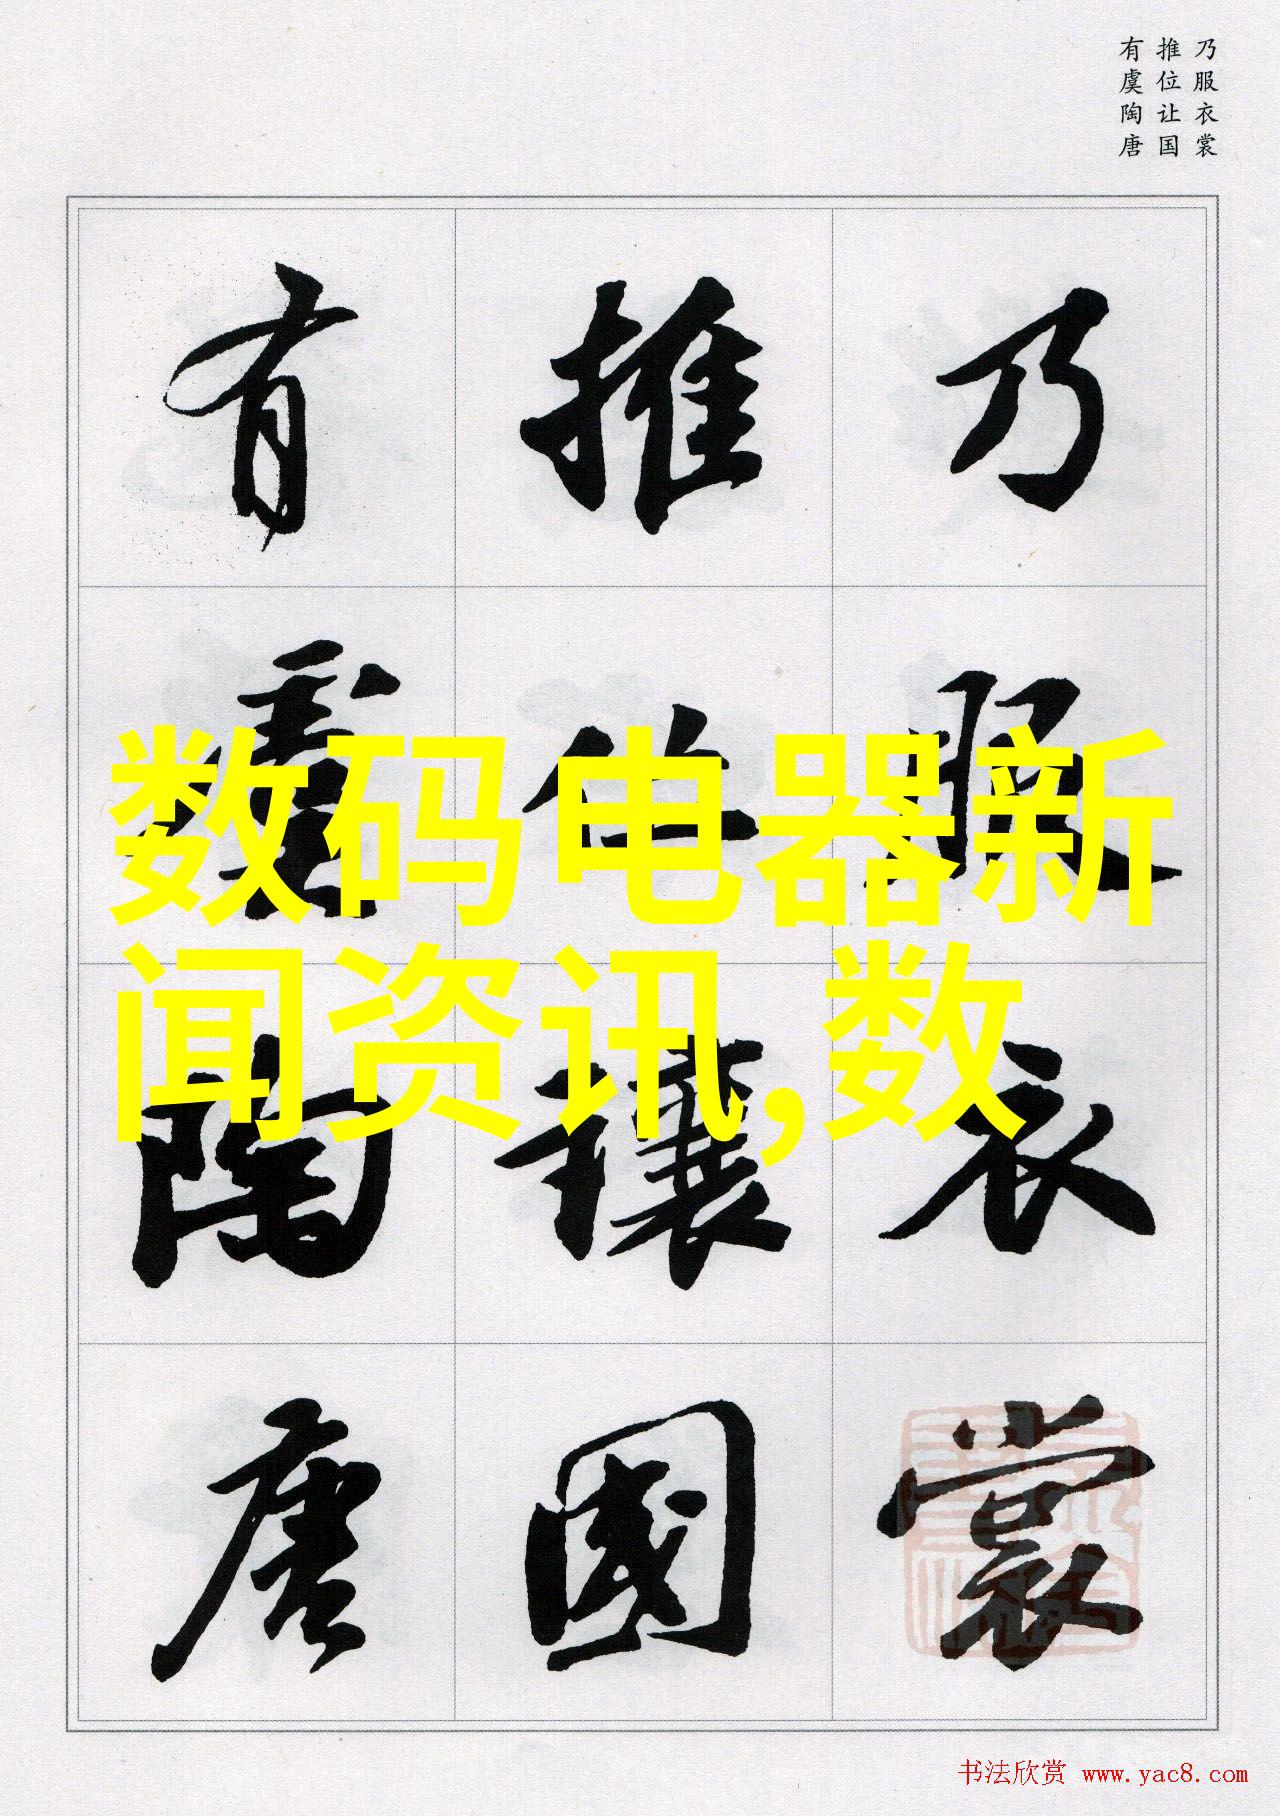 乃服衣裳
推位让国
有虞陶唐
乃服衣裳
推位讓國
有虞陶唐
数码电器新
闻资讯,数
书法欣赏 www.yac8.com